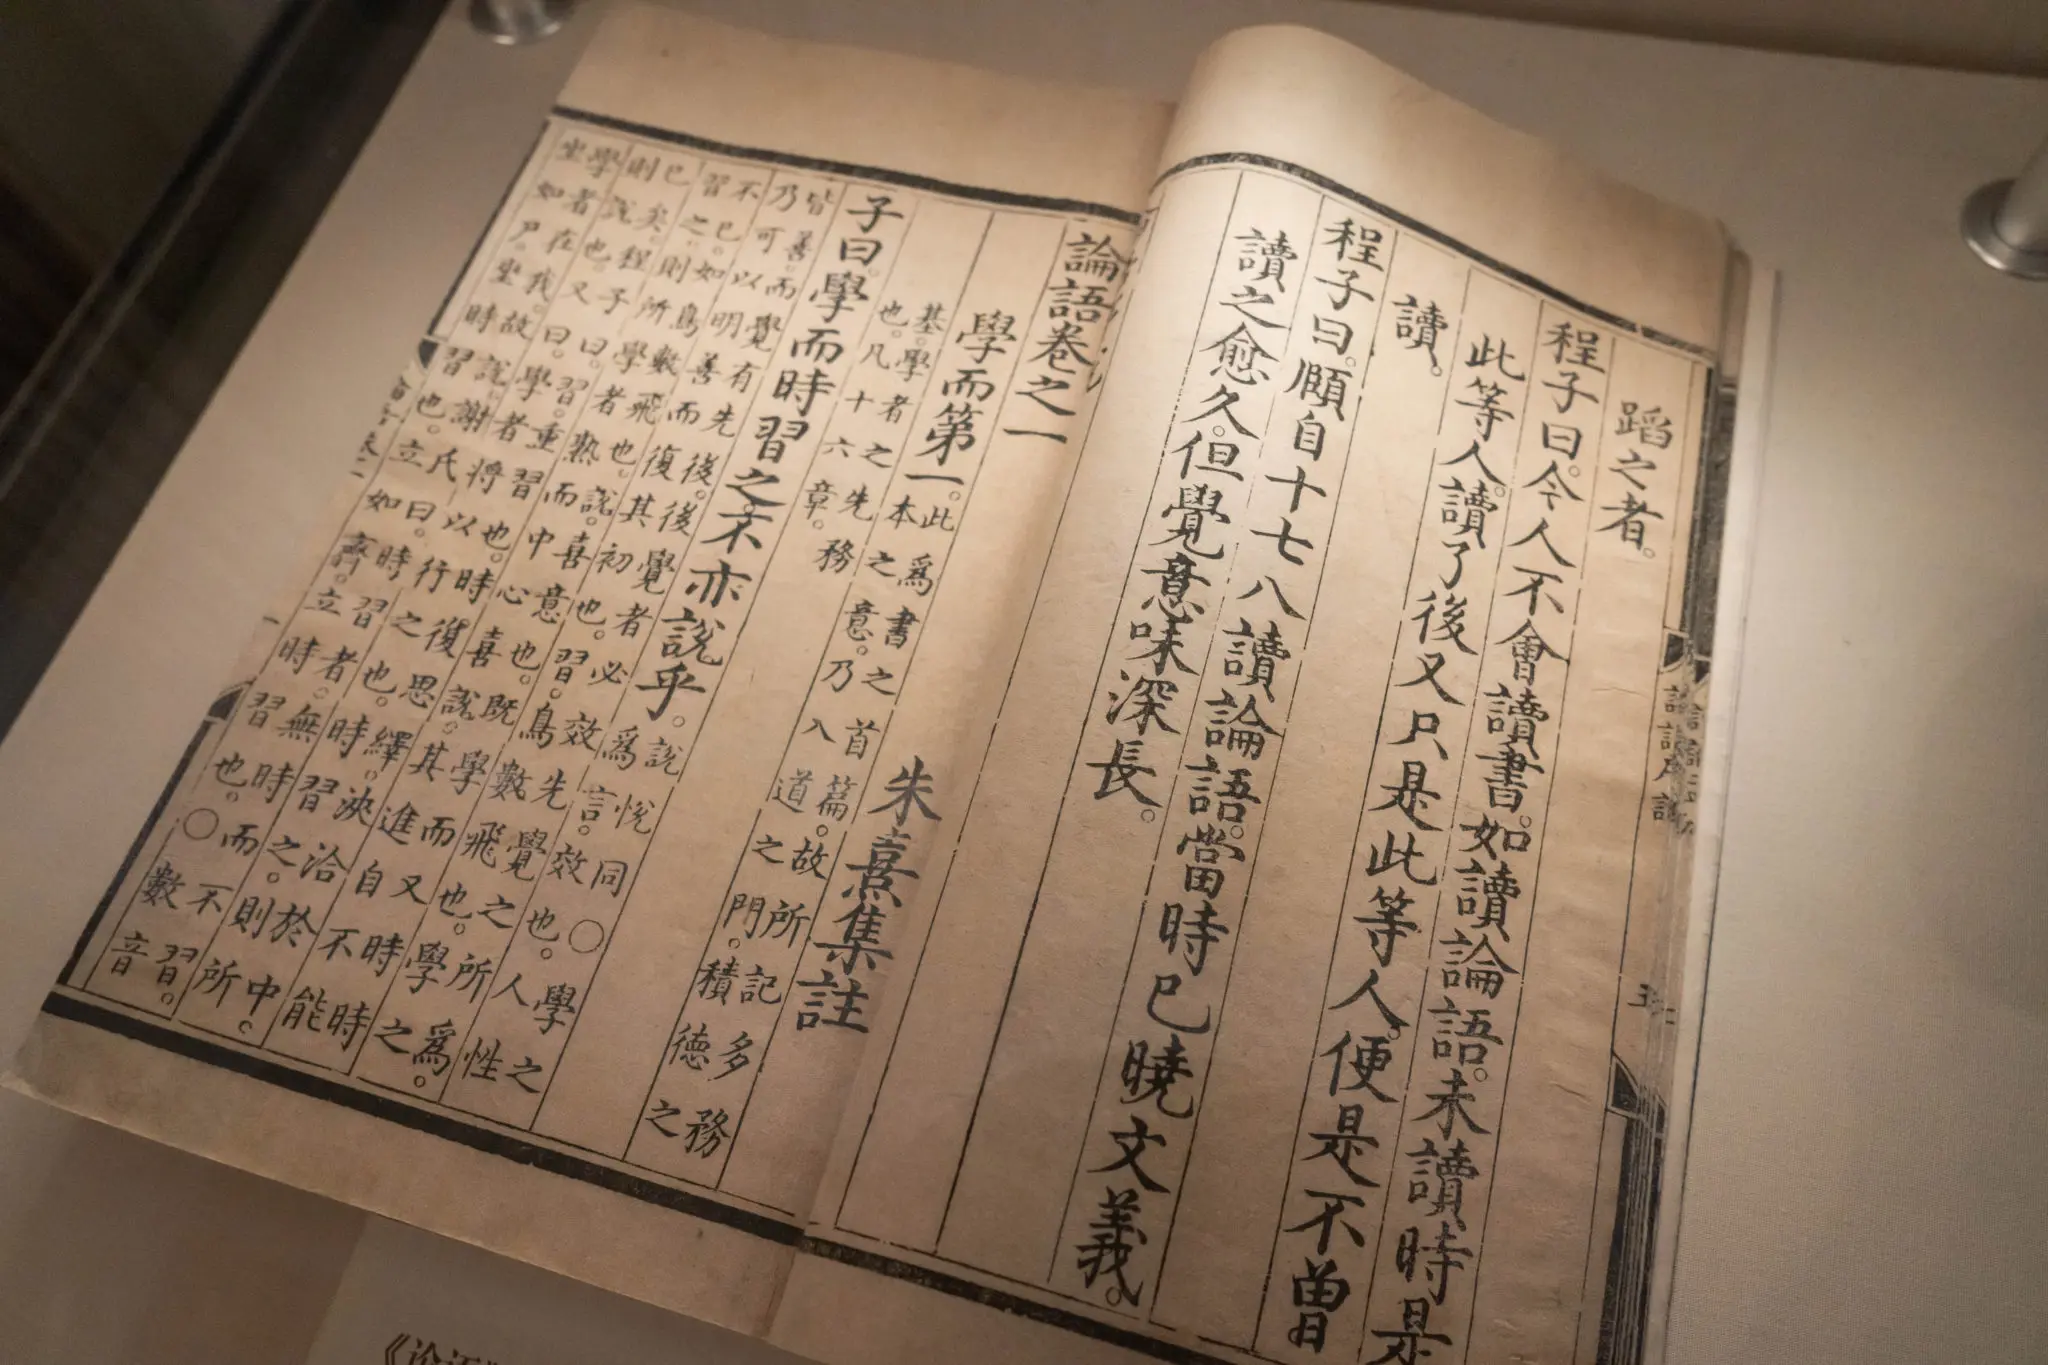 蹈之者。
程子曰。今人不會讀書。如讀論語。未讀時是
此等人。讀了後又只是此等人。便是不曾
讀。
程子曰。頤自十七八讀論語。當時已曉文義。
讀之愈久。但覺意味深長。
論語卷之一 朱熹集註
學而第一。此爲書之首篇。故所記多務
本之意。乃入道之門。積德之
基。學者之先務
也。凡十六章。
子曰。學而時習之。不亦說乎。說悅同○學之
爲言。效也。人性
皆善。而覺有先後。後覺者必效先覺之所爲。
乃可以明善而復其初也。習。鳥數飛也。學之
不已。如鳥數飛也。說。喜意也。既學而又時
習之。則所學者熟而中心喜說。其進自不能
已矣。程子曰。習。重習也。時復思繹。浹洽於中。
則說也。又曰。學者將以行之也。時習之。則所
學者在我。故說。謝氏曰。時習者。無時而不習。
坐如尸。坐時習也。立如齊。立時習也。○數音